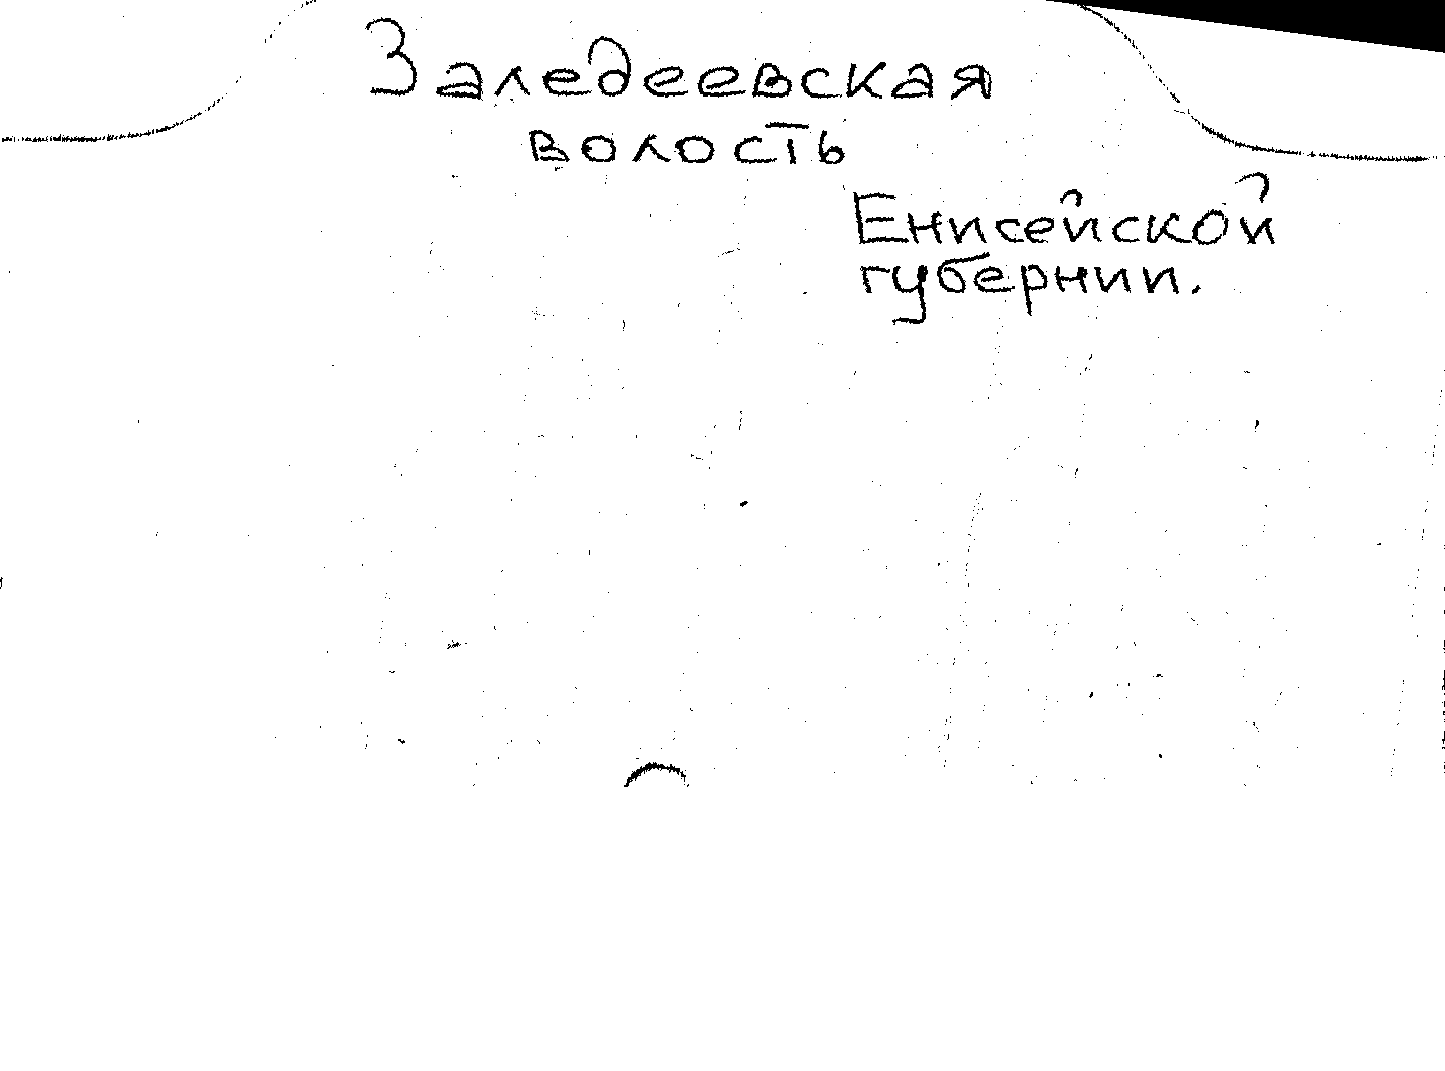 Заледеевская
волость
Енисейской
губернии.